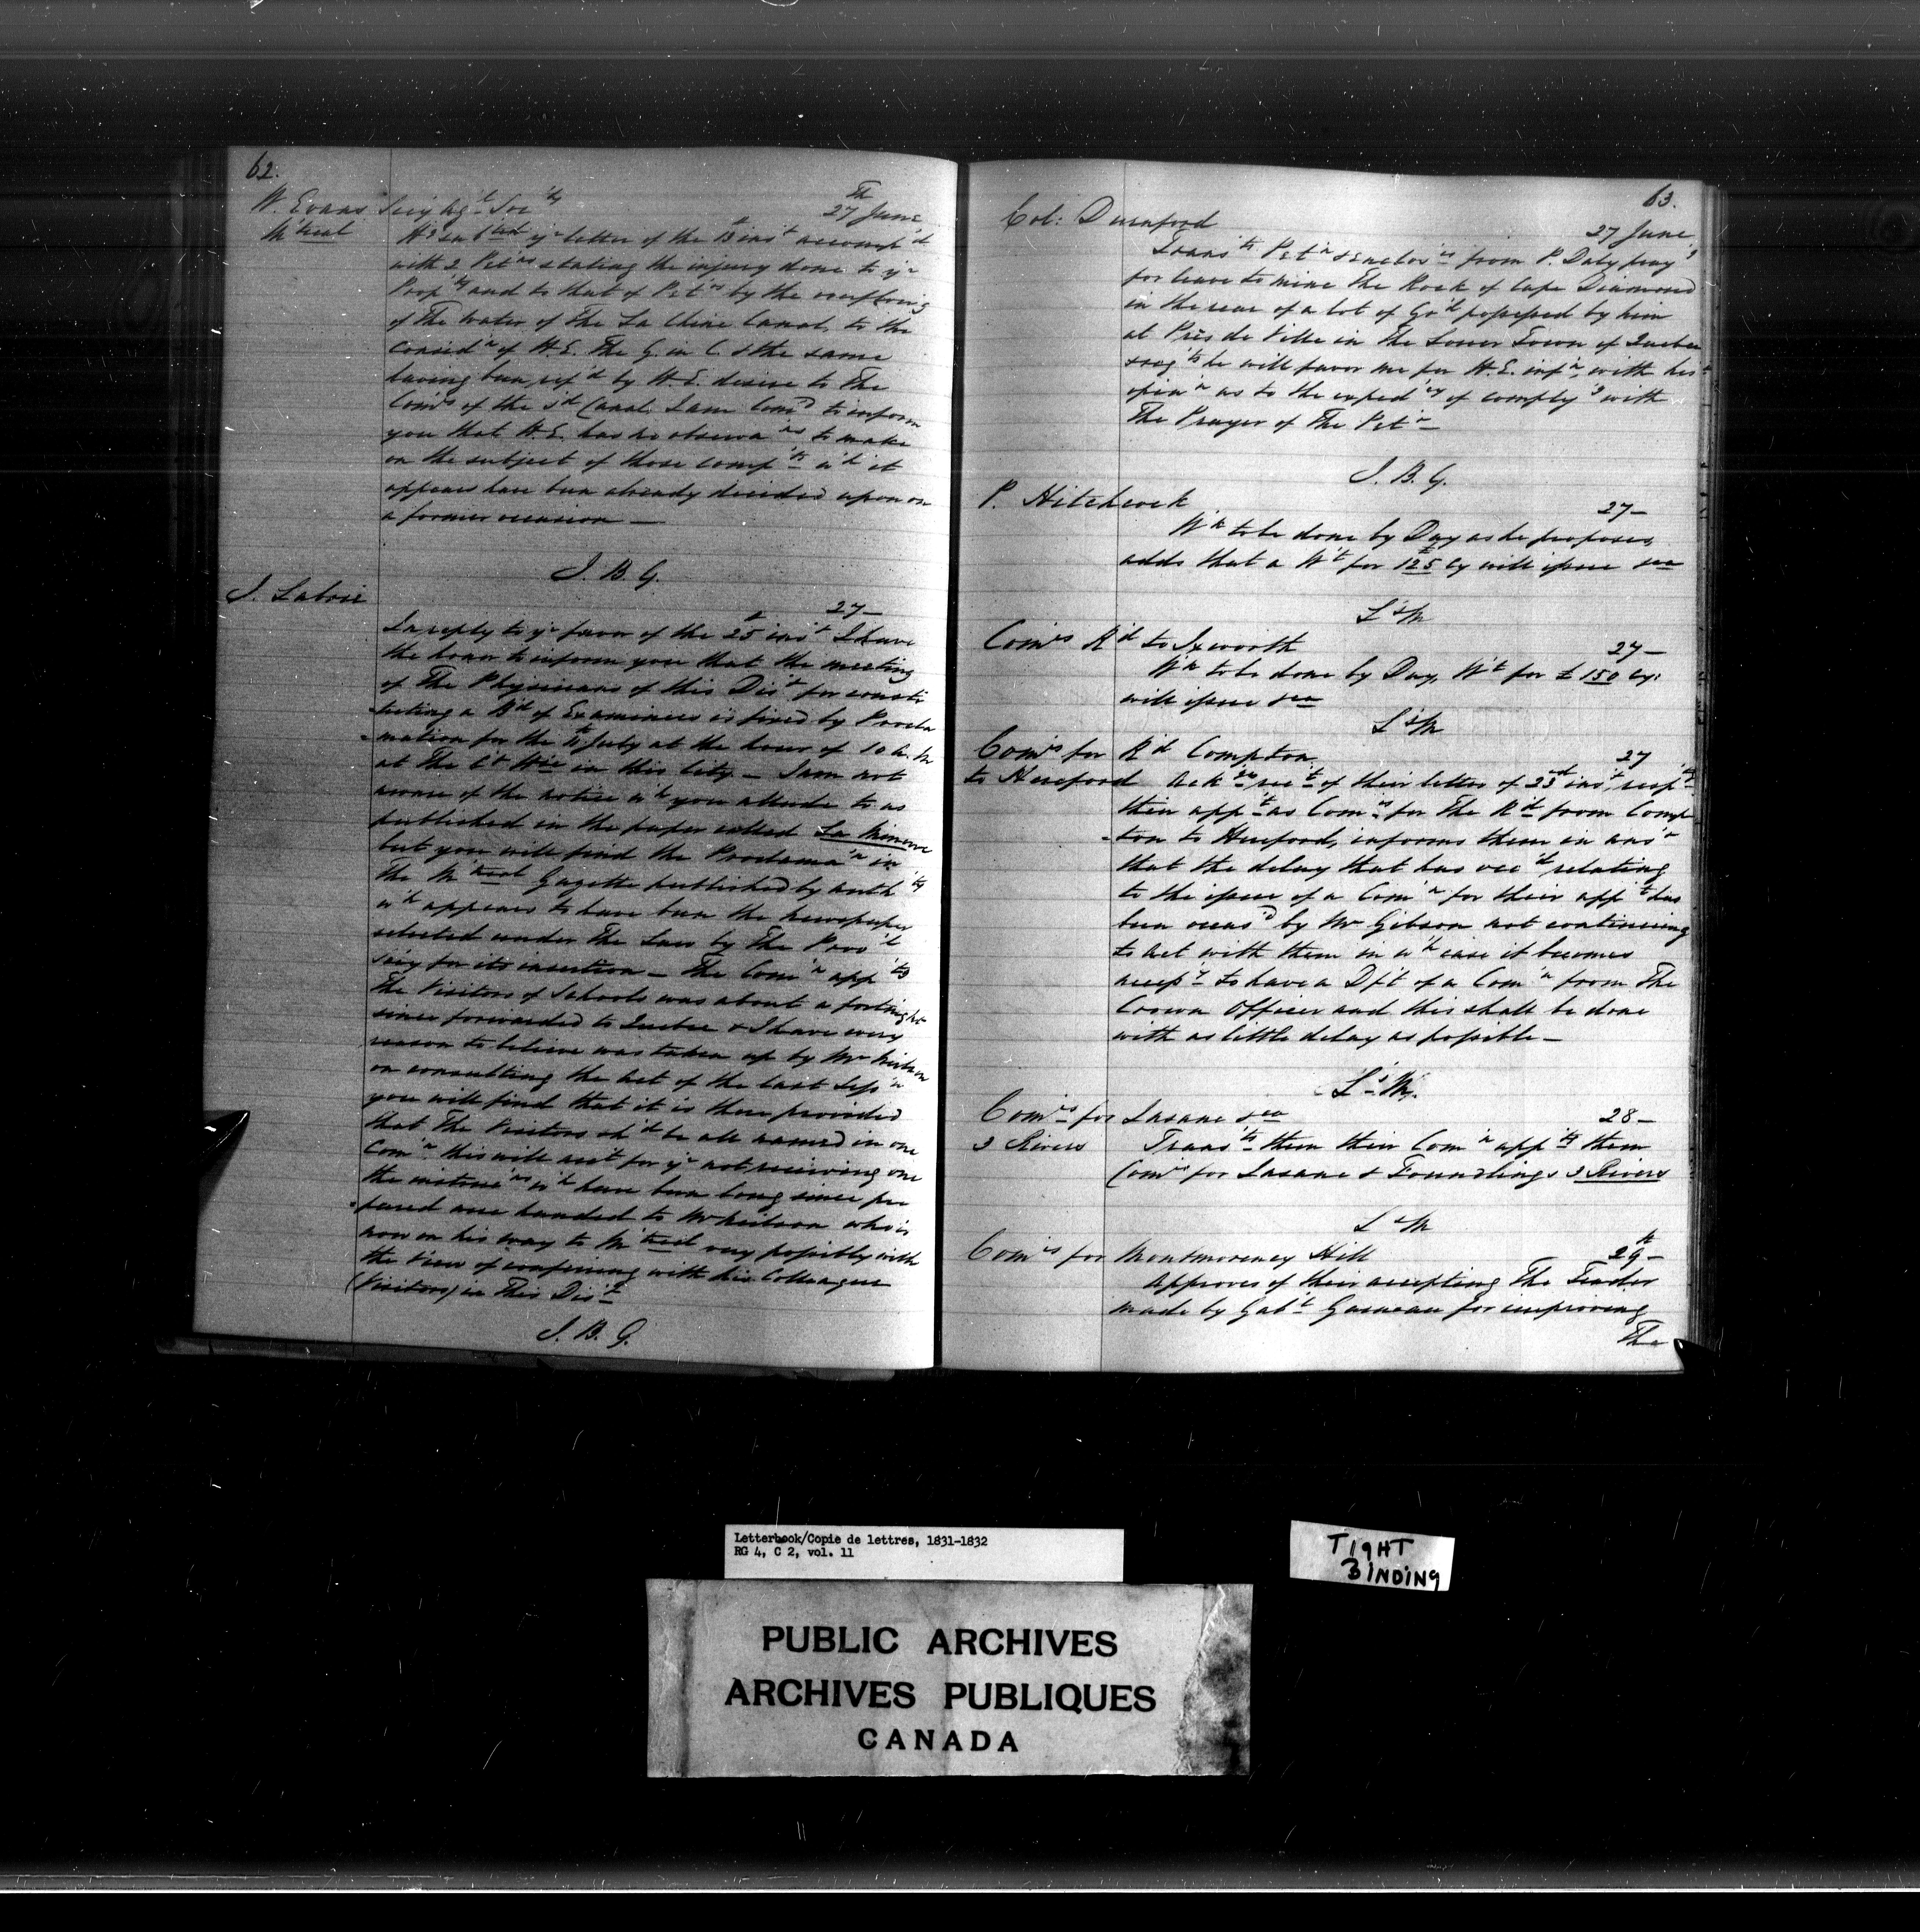 62.
W. Evans Secy Agl Socty
27th June
M'treal
yr letter of the 13 inst accompd
with 2 Petns stating the injury done to yr
Propty and to that of Petrs by the overflowing
of the Water of the La Chine Canal, to the
Considn of H.E. The G. in C. & the same
having been refd by H.E. desire to the
Comrs of the sd Canal. I am Comd to inform
you that H.E. has no observans to make
on the subject of those compts wh it
appears have been already decided upon on
a former occasion —
J. B. G.
J. Labrie
27 —
In reply to yr favor of the 25 inst I have
the honor to inform you that the meeting
of The Physicians of this Dist for consti
tuting a Bd of Examiners is fixed by Procla
-mation for the 11th July at the hour of 10 A.M
at The Ct Hse in this City — I am not
aware of the notice wh you allude to as
published in the paper called La Minerve
but you will find the Proclaman in
The M'treal Gazette published by authty
wh appears to have been the newspaper
selected under the Law by The Provl
Secy for its insertion — The Comn appts
The Visitors of Schools was about a fortnight
since forwarded to Quebec & I have every
reason to believe was taken up by Mr Neilson
on consulting the Act of the last Sessn
you will find that it is there provided
that The Visitors shd be all named in one
Comn this will acct for yr not receiving one
the instructns wh have been long since pre
-pared were handed to Mr Neilson who is
now on his way to M'treal very possibly with
the view of conferring with his Colleagues
(Visitors) in This Dist
J. B. G.
63.
Col: Durnford
27 June
Transts Petn & Enclos from P. Daly prayg
for leave to mine The Rock of Cape Diamond
in the rear of a lot of Gd possessed by him
at Près de Ville in The Lower Town of Quebec
& reqts he will favor me for H.E. infn, with his
opinn as to the expedcy of complyg with
The Prayer of The Petn —
J. B. G.
P. Hitchcock
27 —
Wk to be done by Day as he proposes,
adds that a Wt for £125 Cy will issue &ca
Ls M
Comrs Rd to Ixworth
27 —
Wk to be done by Day, Wt for £150 Cy:
will issue &ca
Ls M
Comrs for Rd Compton
27
to Hereford Acks rect of their letter of 23rd inst, respg
their appt as Comrs for The Rd from Comp
-ton to Hereford, informs them in answr
that the delay that has occd relating
to the issue of a Comn for their appt has
been occasd by Mr Gibson not continuing
to act with them in wh case it becomes
necessy to have a Dft of a Comn from The
Crown Officer and this shall be done
with as little delay as possible —
Ls M.
Comrs for Insane &ca
28 —
3 Rivers Transts them their Comn appts them
Comrs for Insane & Foundlings 3 Rivers
Ls M
Comrs for Montmorency Hill
29th —
Approves of their accepting The Tender
made by Gabl Garneau for improving
The
Letterbook/Copie de lettres, 1831-1832
RG 4, C 2, vol. 11
TIGHT
BINDING
PUBLIC ARCHIVES
ARCHIVES PUBLIQUES
CANADA